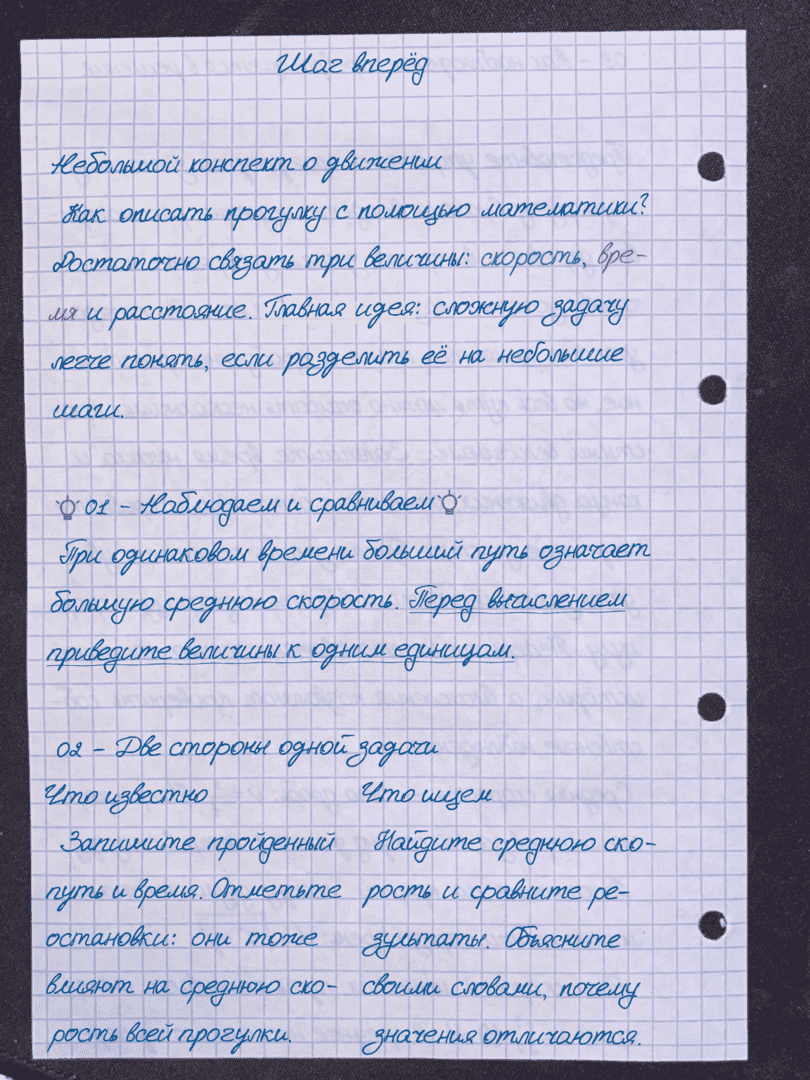 Шаг вперёд
Небольшой конспект о движении
Как описать прогулку с помощью математики?
Достаточно связать три величины: скорость, вре-
мя и расстояние. Главная идея: сложную задачу
легче понять, если разделить её на небольшие
шаги.
01 - Наблюдаем и сравниваем
При одинаковом времени больший путь означает
большую среднюю скорость. Перед вычислением
приведите величины к одним единицам.
02 - Две стороны одной задачи
Что известно
Запишите пройденный
путь и время. Отметьте
остановки: они тоже
влияют на среднюю ско-
рость всей прогулки.
Что ищем
Найдите среднюю ско-
рость и сравните ре-
зультаты. Объясните
своими словами, почему
значения отличаются.